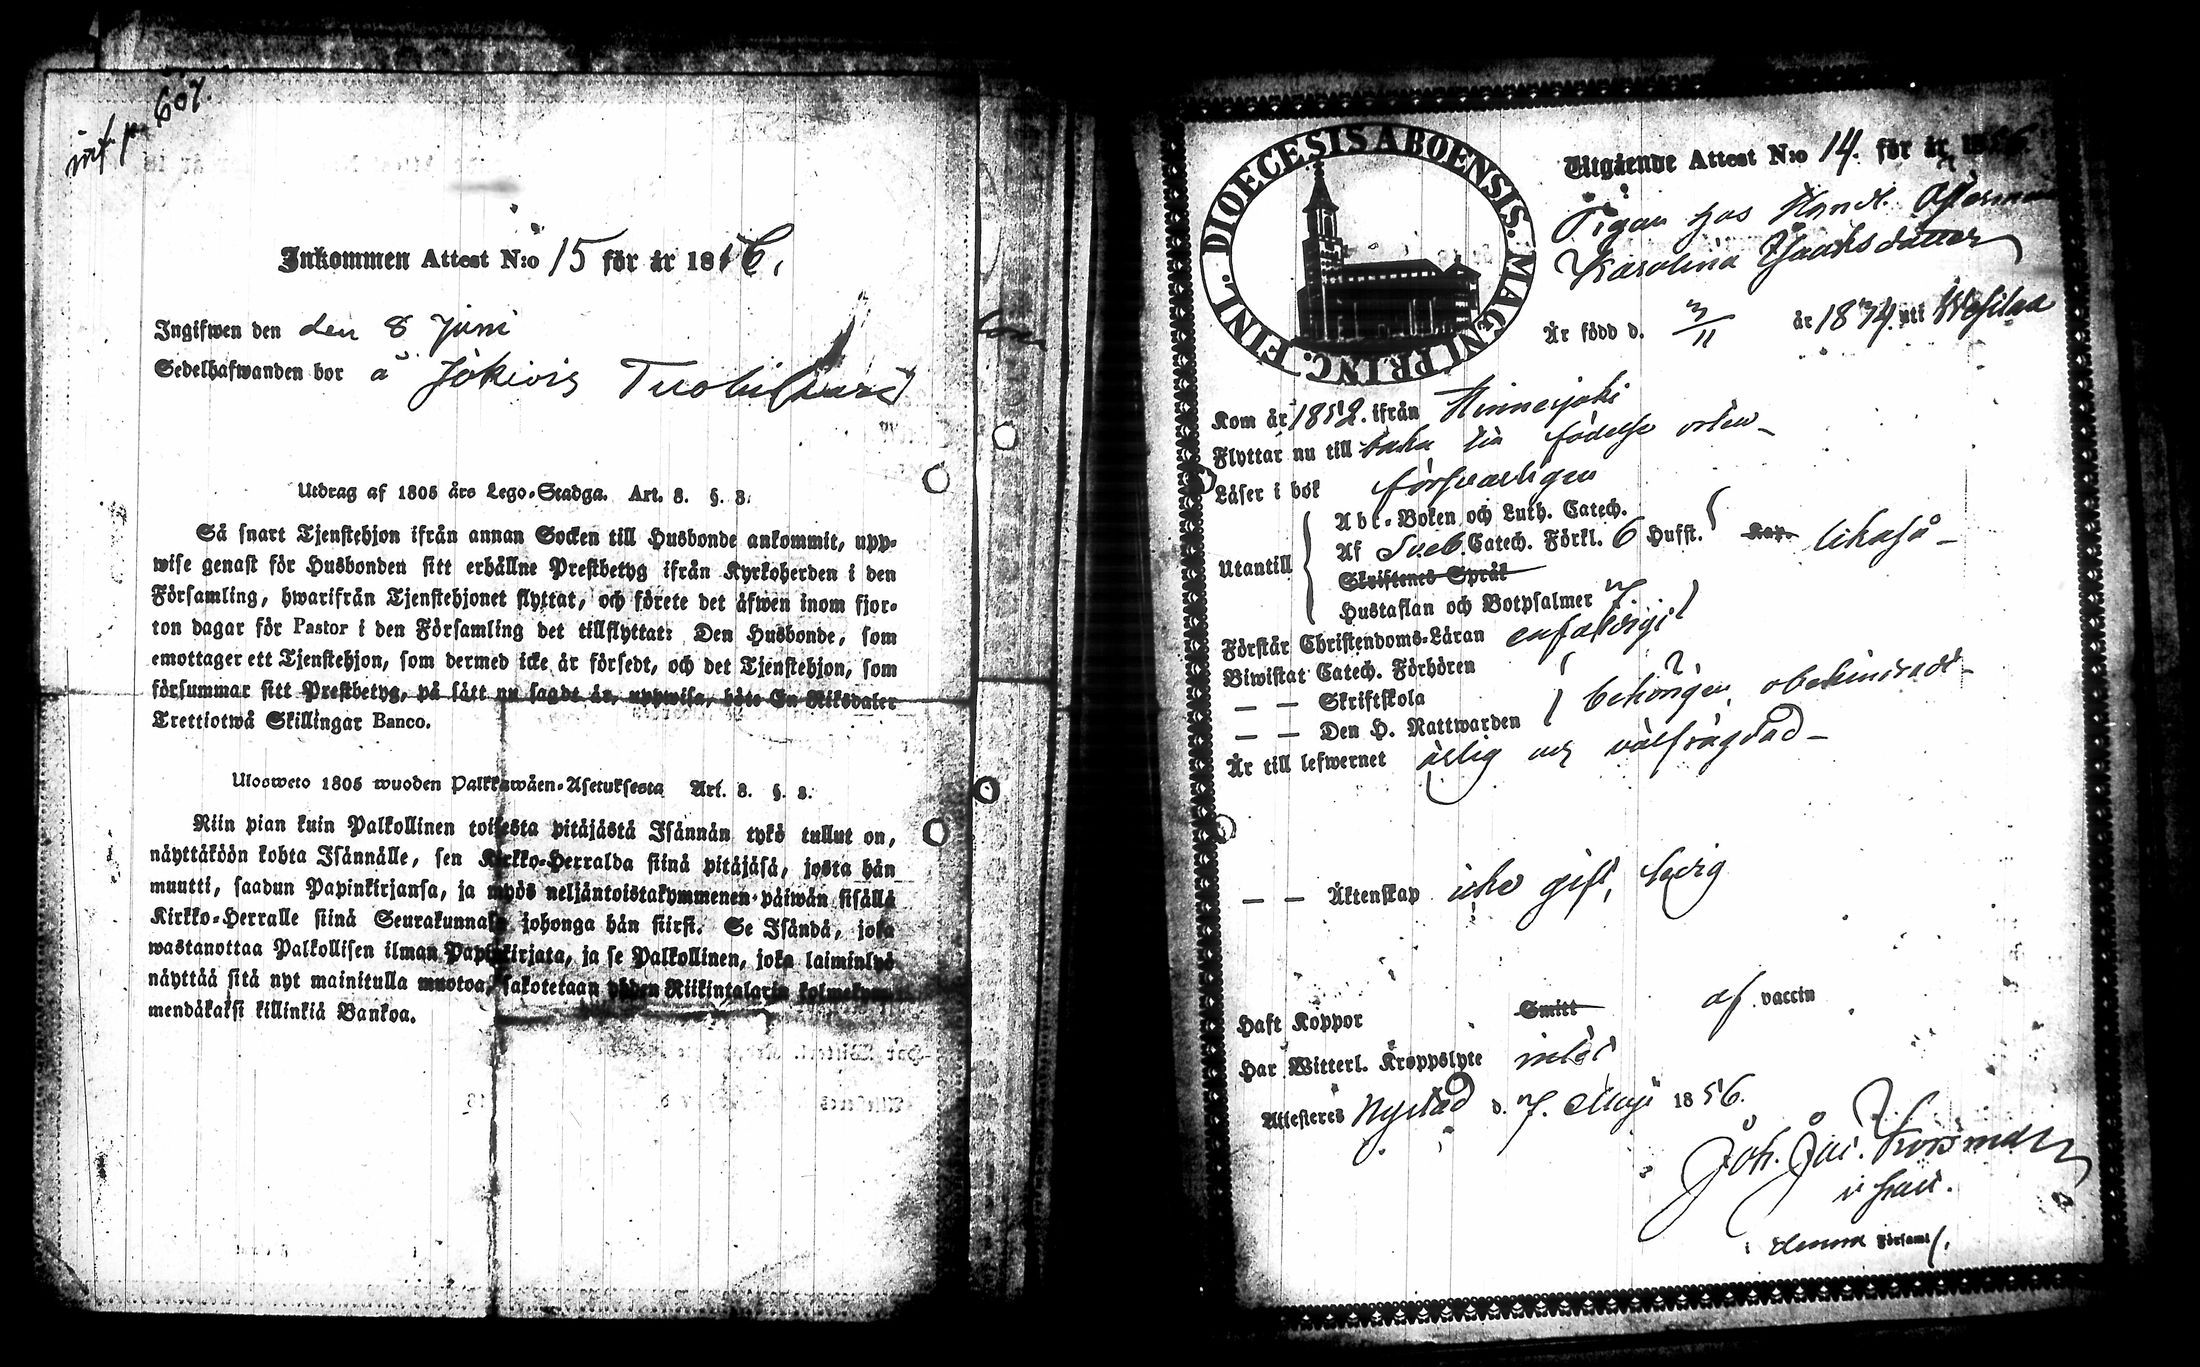 inf. p. 607.
Inkommen Attest N:o 15 för år 1856.
Ingifwen den den 8 Juni
Sedelhafwanden bor å Jokiois
Utdrag af 1805 års Lego-Stadga. Art. 8. §. 3.
Så snart Tjenstehjon ifrån annan Socken till Husbonde ankommit, upp-
wise genast för Husbonden sitt erhållne Prestbetyg ifrån Kyrkoherden i den
Församling, hwarifrån Tjenstehjonet flyttat, och förete det äfwen inom fjor-
ton dagar för Pastor i den Församling det tillflyttat: Den Husbonde, som
emottager ett Tjenstehjon, som dermed icke är försedt, och det Tjenstehjon, som
försummar sitt Prestbetyg, på sätt nu sagdt är, uppwisa, böte En Riksdaler
Trettiotwå Skillingar Banco.
Ulosweto 1805 wuoden Palkkawäen-Asetuksesta Art. 8. §. 3.
Niin pian kuin Palkollinen toisesta pitäjästä Isännän tykö tullut on,
näyttäköön kohta Isännälle, sen Kirkko-Herralda siinä pitäjäsä, josta hän
muutti, saadun Papinkirjansa, ja myös neljäntoistakymmenen-päiwän sisällä
Kirkko-Herralle siinä Seurakunnasa johonga hän siirsi. Se Isändä, joka
wastanottaa Palkollisen ilman Papinkirjata, ja se Palkollinen, joka laiminlyö
näyttää sitä nyt mainitulla muotoa, sakotetaan yhden Riikintalarin kolmekym-
mendäkaksi killinkiä Bankoa.
DIOECESIS ABOENSIS. MAGNI PRINC. FINL.
Utgående Attest N:o 14. för år 1856.
Pigan hos Handl. Österman
Karolina Isaaksdotter
Är född d. 3/11 år 1834 uti
Kom år 1852. ifrån Hinnerjoki
Flyttar nu till baka till födelse orten
Läser i bok försvarligen
Utantill
Abc-Boken och Luth. Catech.
Af Sveb. Catech. Förkl. 6 Hufst. Kap. likaså
Skriftenes Språk
Hustaflan och Botpsalmer 7
Förstår Christendoms-Läran enfaldigt
Biwistat Catech. Förhören
— — Skriftskola behörigen, obehindrad
— — Den H. Nattwarden
Är till lefwernet ärlig och välfrägdad
— — Äktenskap icke gift, ledig
Haft Koppor Smitt af vaccin
Har Witterl. Kroppslyte intet
Attesteres Nystad d. 7. Maji 1856.
Joh. Jac.
i Församl.